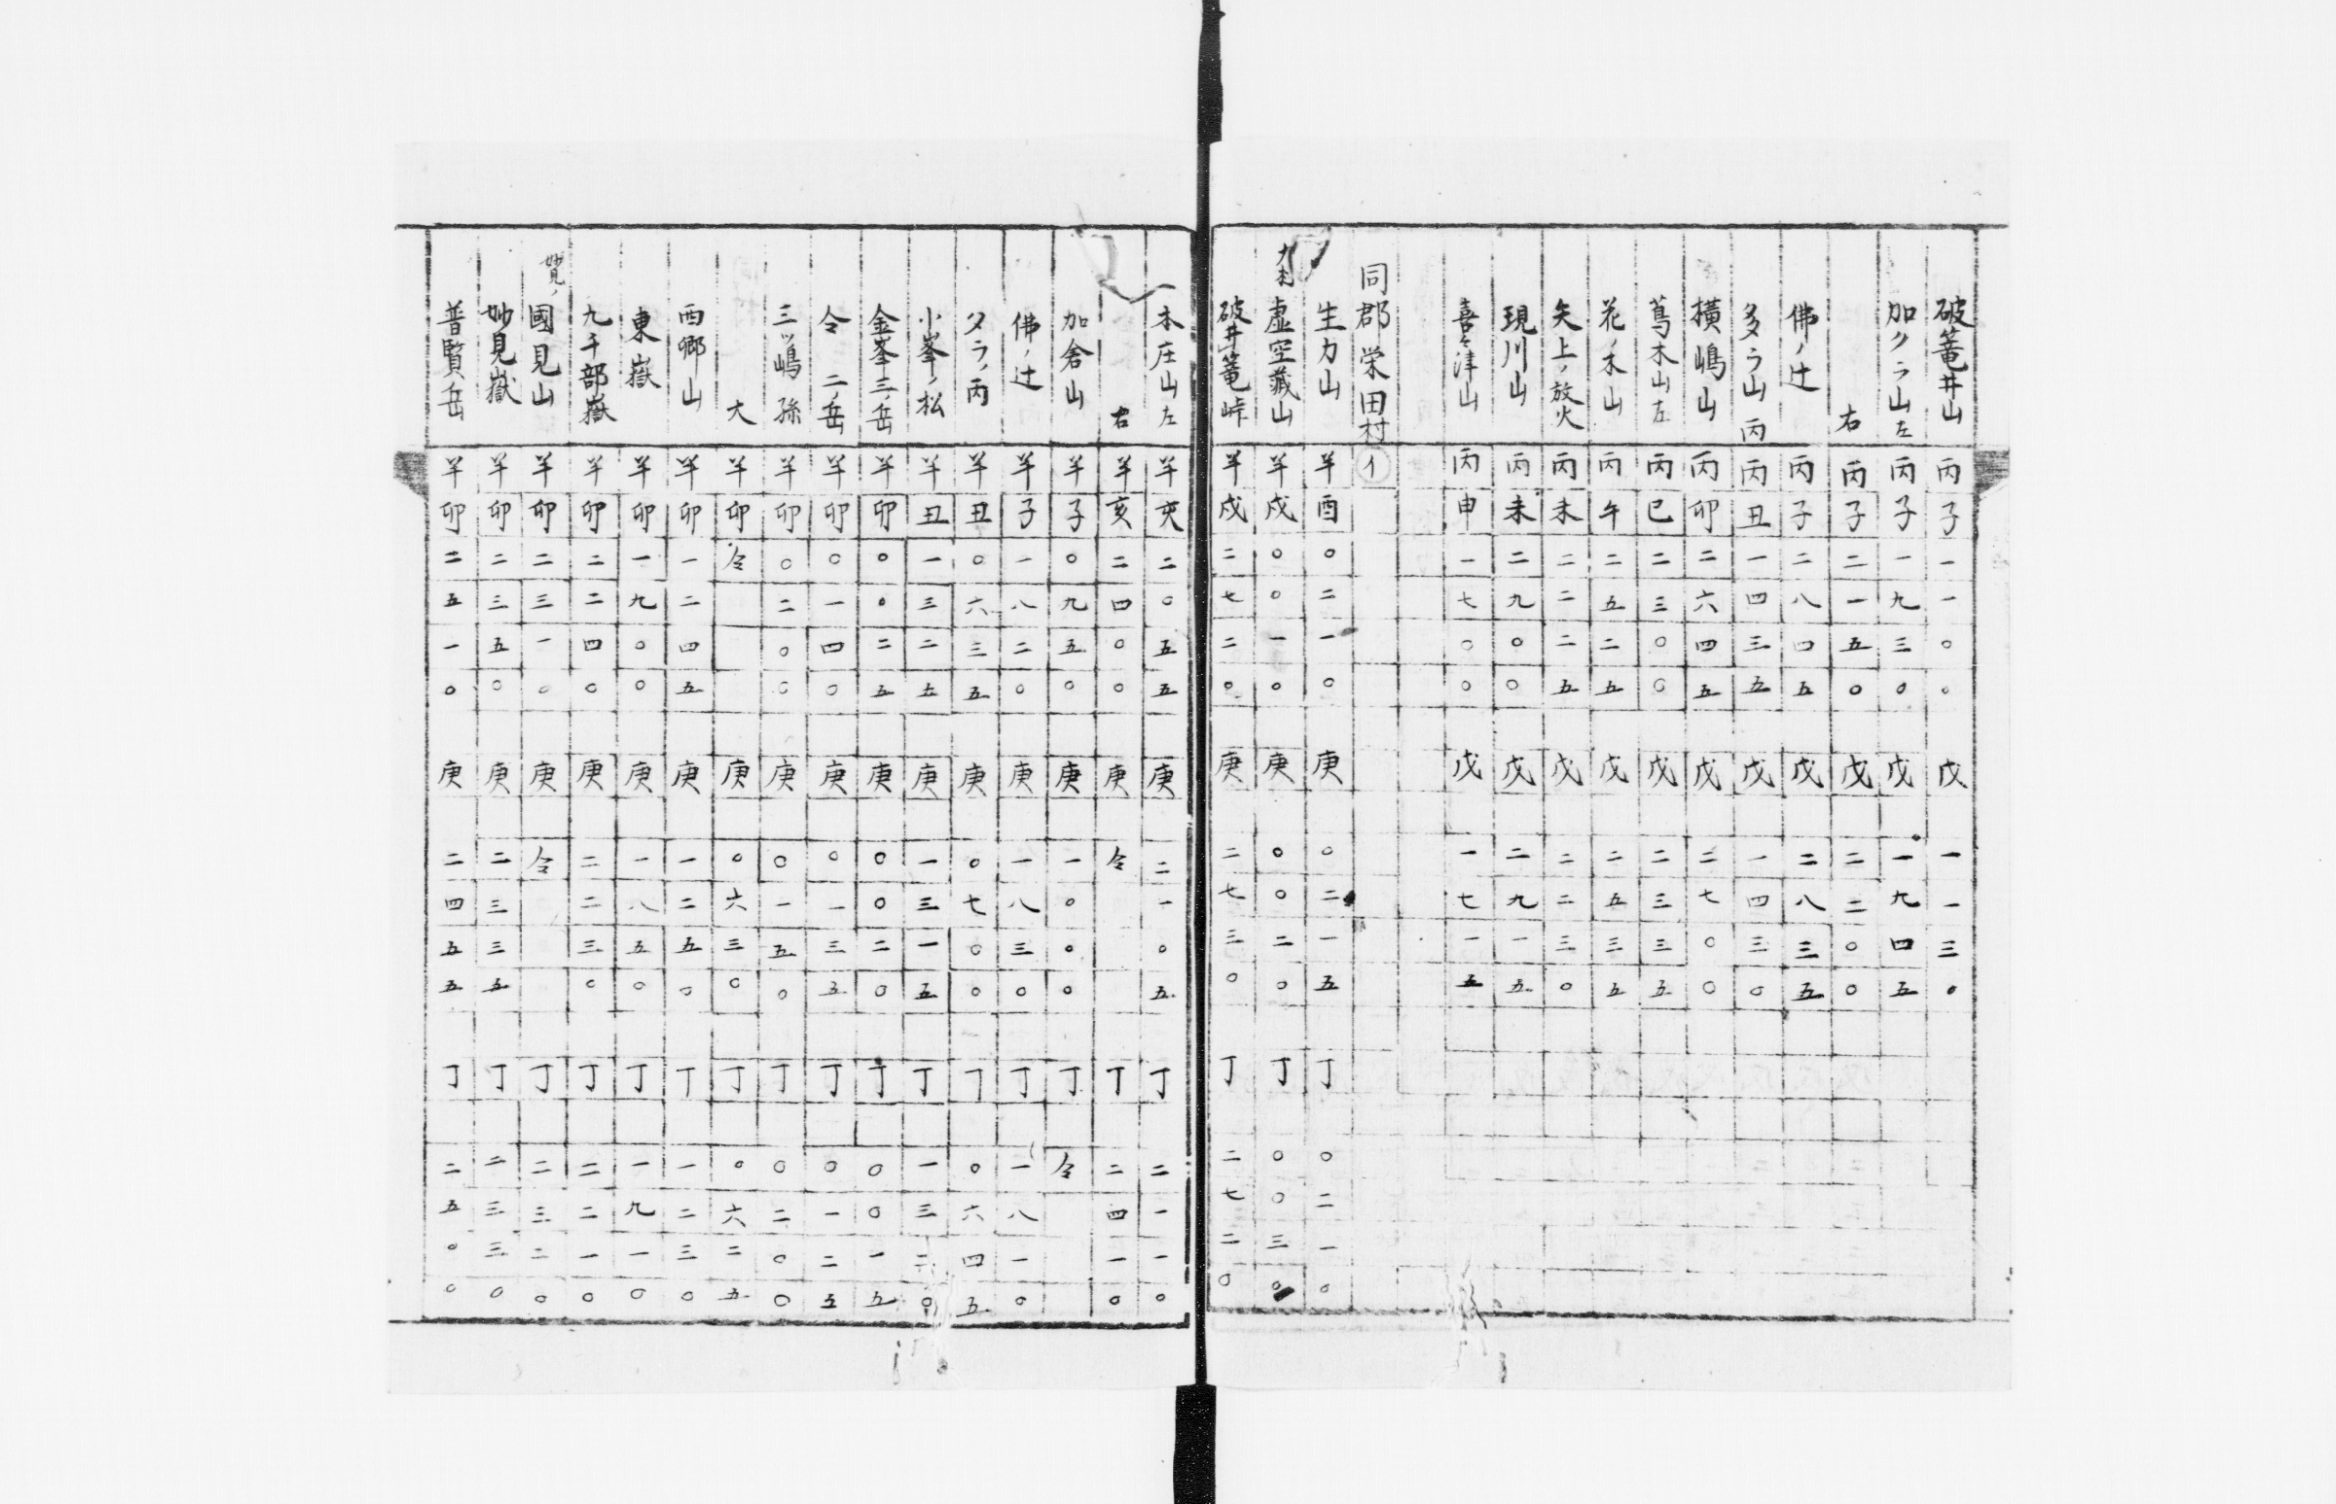 破篭井山 丙 子 一 一 〇 〇 戊 一 一 三 〇
加クラ山左 丙 子 一 九 三 〇 戊 一 九 四 五
右 丙 子 二 一 五 〇 戊 二 二 〇 〇
佛ノ辻 丙 子 二 八 四 五 戊 二 八 三 五
多ラ山丙 丙 丑 一 四 三 五 戊 一 四 三 〇
横嶋山 丙 卯 二 六 四 五 戊 二 七 〇 〇
蔦木山左 丙 巳 二 三 〇 〇 戊 二 三 三 五
花ノ木山 丙 午 二 五 二 五 戊 二 五 三 五
矢上ノ放火 丙 未 二 二 二 五 戊 二 二 三 〇
現川山 丙 未 二 九 〇 〇 戊 二 九 一 五
喜々津山 丙 申 一 七 〇 〇 戊 一 七 一 五
同郡栄田村イ
生力山 羊 酉 〇 二 一 〇 庚 〇 二 一 五 丁 〇 二 一 〇
虚空藏山 羊 戌 〇 〇 一 〇 庚 〇 〇 二 〇 丁 〇 〇 三 〇
破井篭峠 羊 戌 二 七 二 〇 庚 二 七 三 〇 丁 二 七 二 〇
本庄山左 羊 亥 二 〇 五 五 庚 二 一 〇 五 丁 二 一 一 〇
右 羊 亥 二 四 〇 〇 庚 令 丁 二 四 一 〇
加倉山 羊 子 〇 九 五 〇 庚 一 〇 〇 〇 丁 令
佛ノ辻 羊 子 一 八 二 〇 庚 一 八 三 〇 丁 一 八 一 〇
タラノ丙 羊 丑 〇 六 三 五 庚 〇 七 〇 〇 丁 〇 六 四 五
小峯ノ松 羊 丑 一 三 二 五 庚 一 三 一 五 丁 一 三 二 〇
金峯三ノ岳 羊 卯 〇 〇 二 五 庚 〇 〇 二 〇 丁 〇 〇 一 五
令 二ノ岳 羊 卯 〇 一 四 〇 庚 〇 一 三 五 丁 〇 一 二 五
三ツ嶋 孫 羊 卯 〇 二 〇 〇 庚 〇 一 五 〇 丁 〇 二 〇 〇
大 羊 卯 令 庚 〇 六 三 〇 丁 〇 六 二 五
西郷山 羊 卯 一 二 四 五 庚 一 二 五 〇 丁 一 二 三 〇
東嶽 羊 卯 一 九 〇 〇 庚 一 八 五 〇 丁 一 九 一 〇
九千部嶽 羊 卯 二 二 四 〇 庚 二 二 三 〇 丁 二 二 一 〇
妙見ノ國見山 羊 卯 二 三 一 〇 庚 令 丁 二 三 二 〇
妙見嶽 羊 卯 二 三 五 〇 庚 二 三 三 五 丁 二 三 三 〇
普賢岳 羊 卯 二 五 一 〇 庚 二 四 五 五 丁 二 五 〇 〇